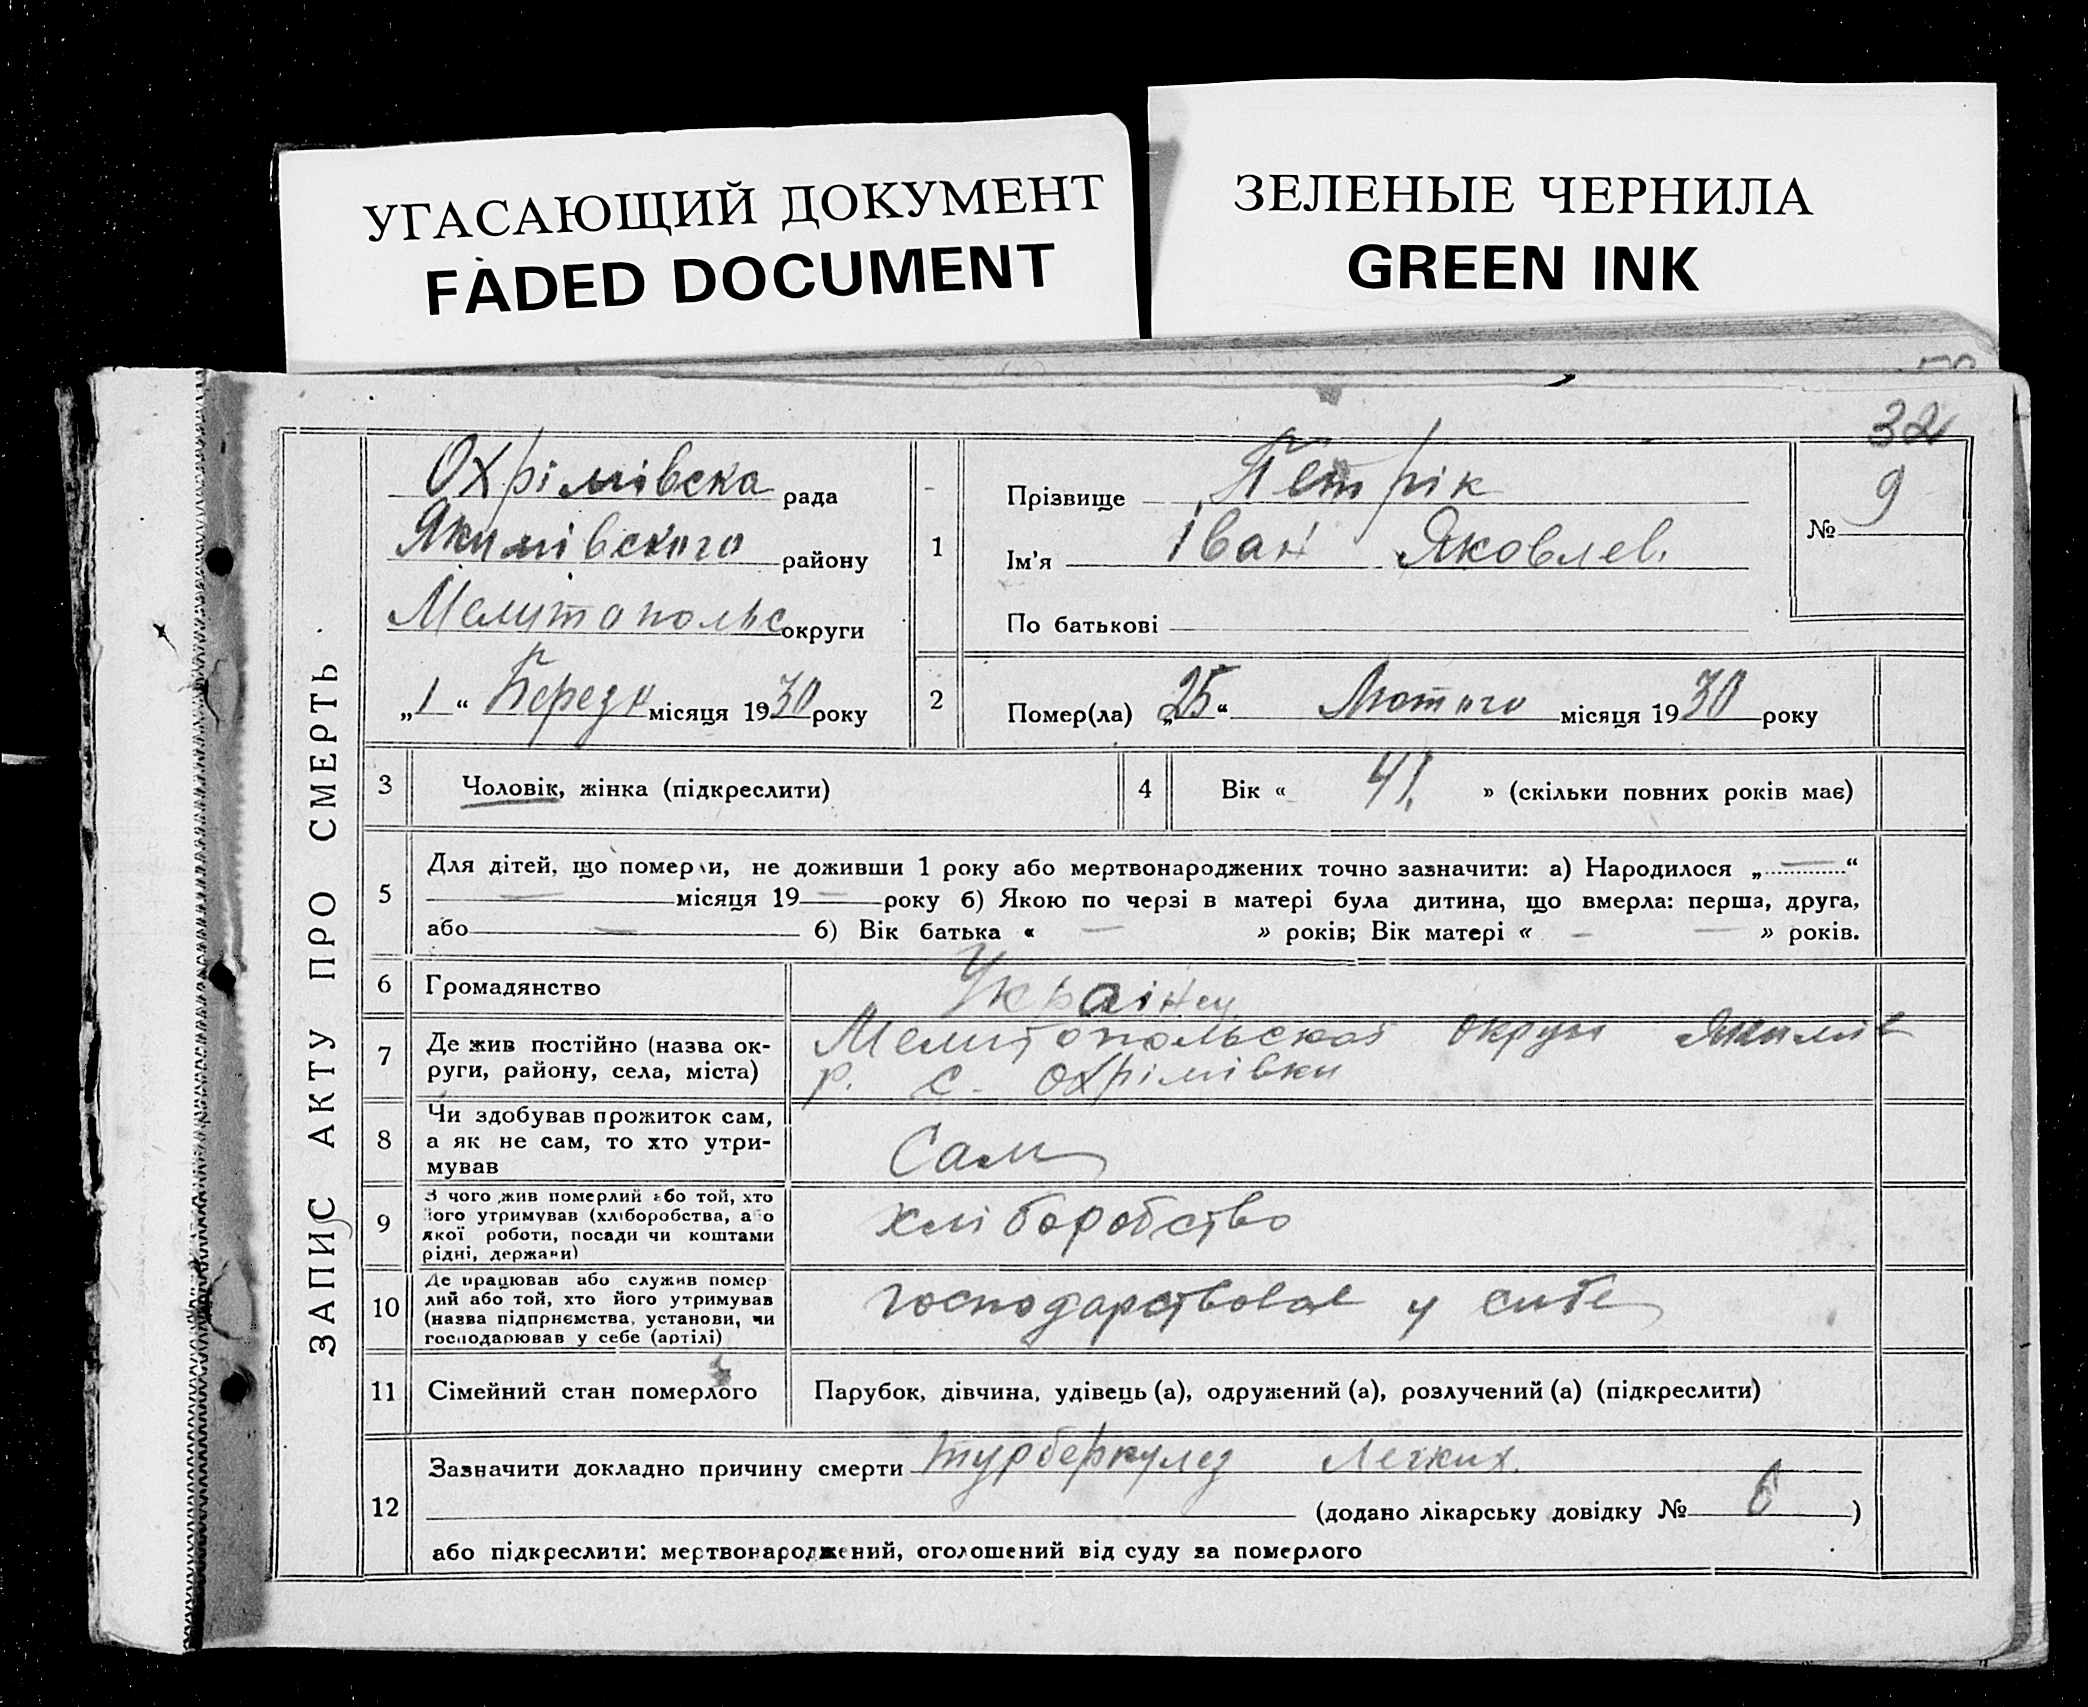 УГАСАЮЩИЙ ДОКУМЕНТ
FADED DOCUMENT
ЗЕЛЕНЫЕ ЧЕРНИЛА
GREEN INK
32
ЗАПИС АКТУ ПРО СМЕРТЬ
Охрімівска рада
Якимівского району
Мелитопольс округи
„1“ Березн місяця 1930 року
1
Прізвище Петрік
Ім'я Іван Яковлев.
По батькові
№ 9
2
Помер(ла) „25“ Лютого місяця 1930 року
3
Чоловік, жінка (підкреслити)
4
Вік « 41. » (скільки повних років має)
5
Для дітей, що померли, не доживши 1 року або мертвонароджених точно зазначити: а) Народилося „—“
— місяця 19— року б) Якою по черзі в матері була дитина, що вмерла: перша, друга,
або — б) Вік батька « — » років; Вік матері « — — » років.
6
Громадянство
Українец
7
Де жив постійно (назва ок-
руги, району, села, міста)
Мелитопольской округи Якимів
р. с. Охрімівки
8
Чи здобував прожиток сам,
а як не сам, то хто утри-
мував
Сам
9
З чого жив померлий або той, хто
його утримував (хліборобства, або
якої роботи, посади чи коштами
рідні, держави)
хліборобство
10
Де працював або служив помер
лий або той, хто його утримував
(назва підприємства, установи, чи
господарював у себе (артілі)
господарствовав у сибе
11
Сімейний стан померлого
Парубок, дівчина, удівець (а), одружений (а), розлучений (а) (підкреслити)
12
Зазначити докладно причину смерти турберкулез Легких.
(додано лікарську довідку № 6 )
або підкреслити: мертвонароджений, оголошений від суду за померлого